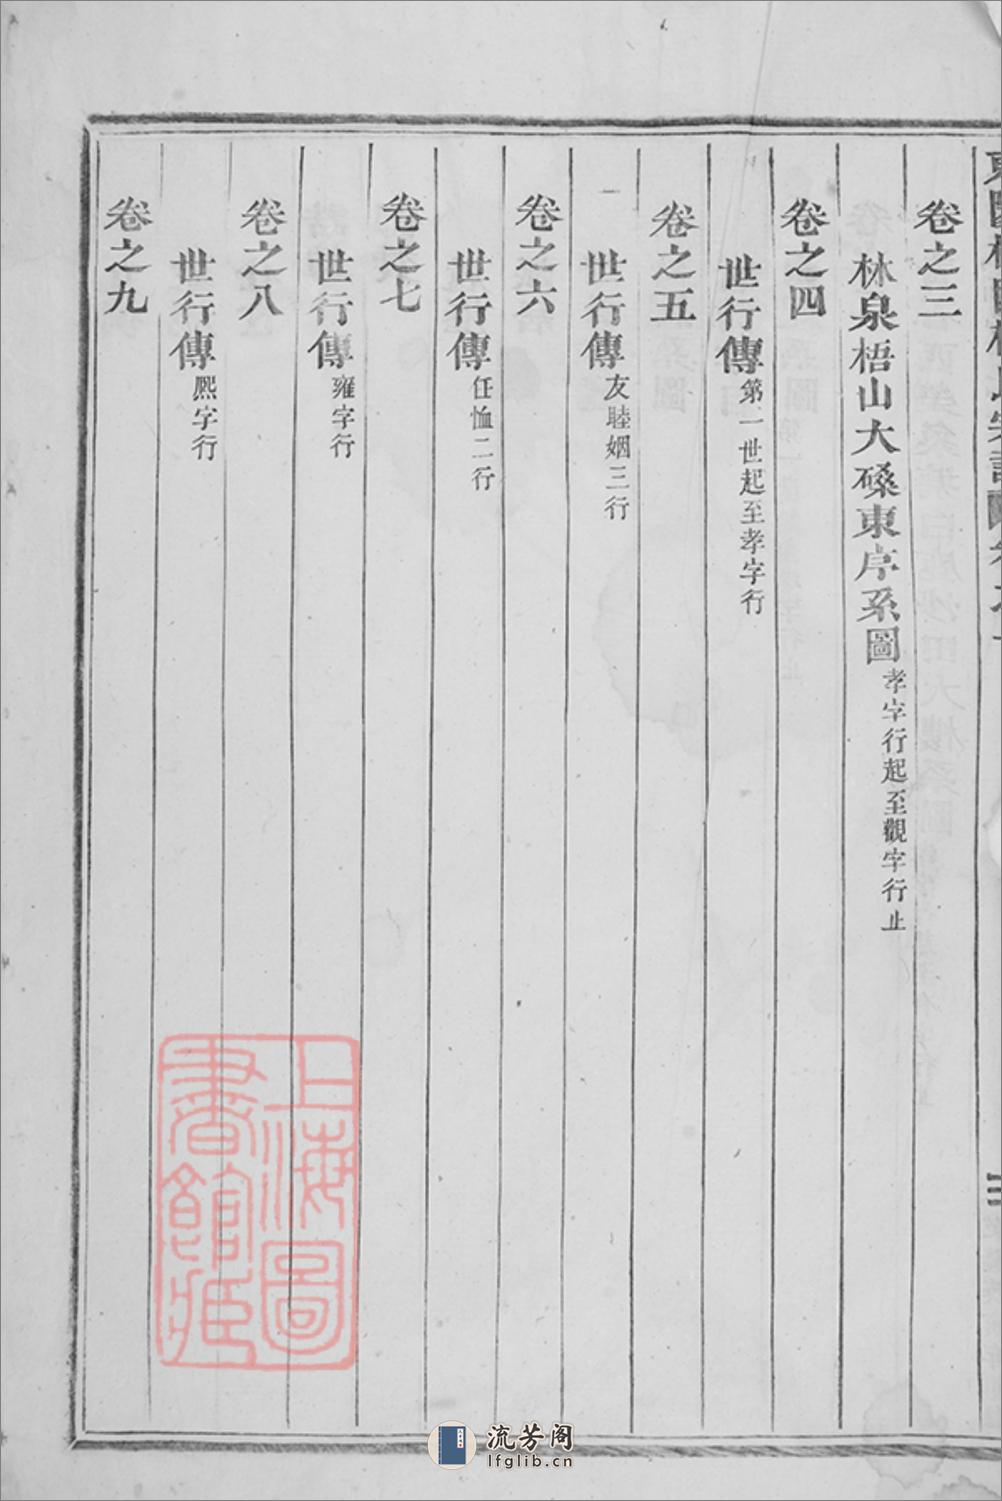 卷之三
林泉梧山大磉東序系圖孝字行起至觀字行止
卷之四
世行傳第一世起至孝字行
卷之五
世行傳友睦姻三行
卷之六
世行傳任恤二行
卷之七
世行傳雍字行
卷之八
世行傳熙字行
卷之九
上海圖書館藏
流芳阁
lfglib.cn